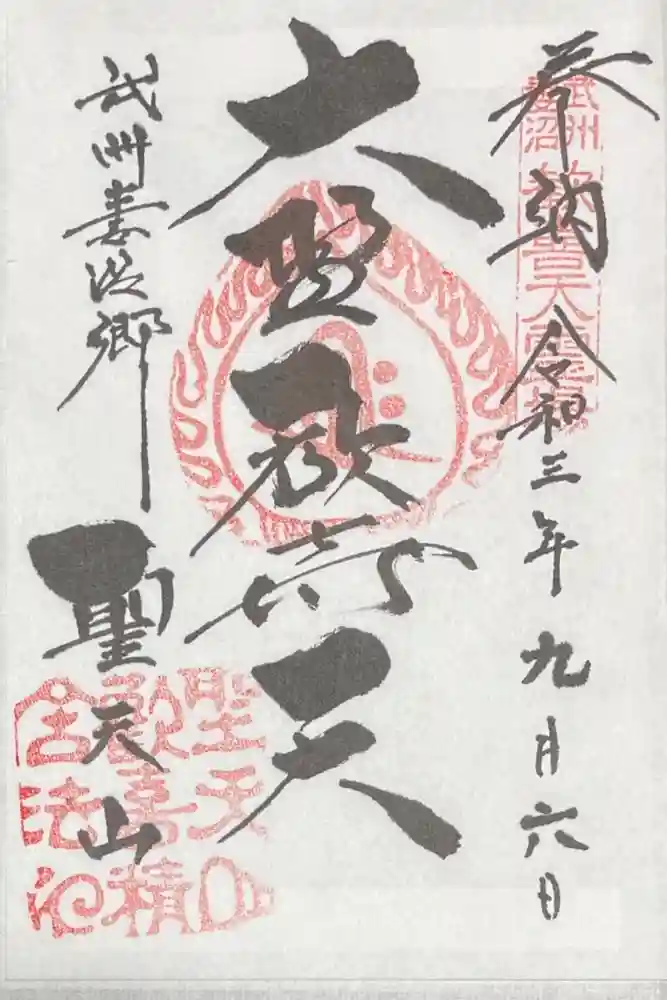 奉納 令和三年九月六日
武州妻沼
歓喜天霊場
大聖歓喜天
武州妻沼郷
聖天山
聖天山
歓喜